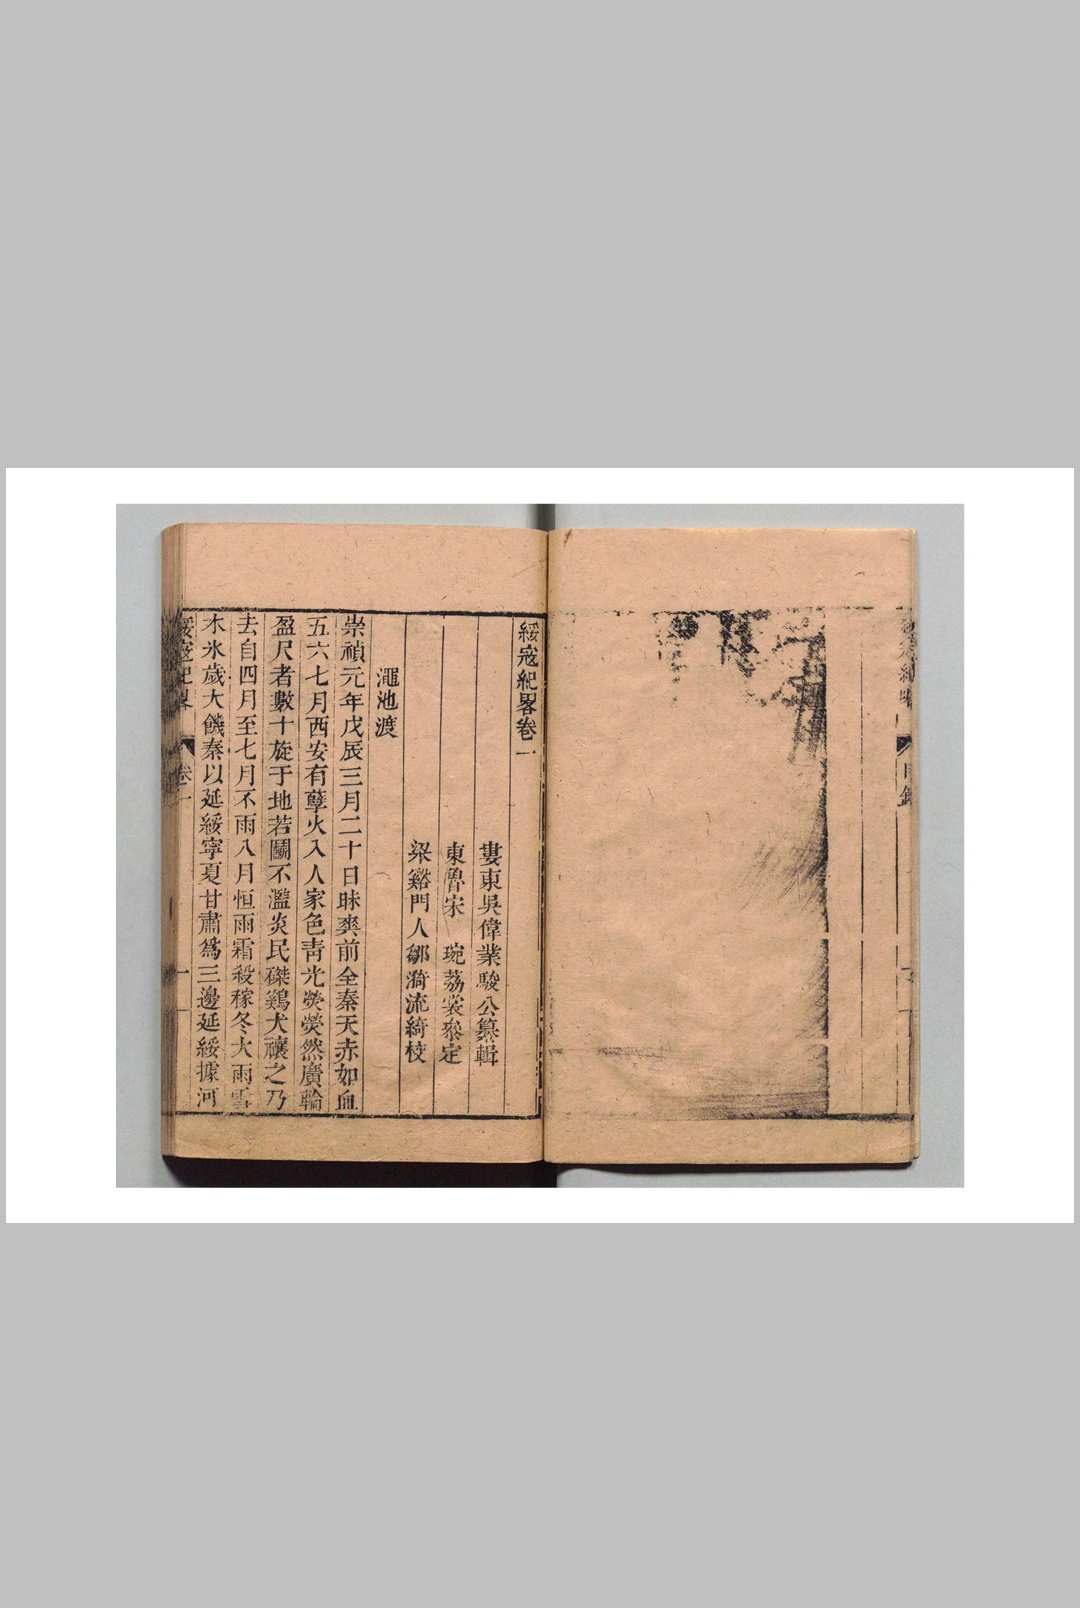 綏寇紀畧
目錄
綏寇紀畧卷一
婁東吳偉業駿公纂輯
東魯宋 琬荔裳叅定
梁谿門人鄒漪流綺校
澠池渡
崇禎元年戊辰三月二十日昧爽前全秦天赤如血
五六七月西安有孽火入人家色青光熒熒然廣輪
盈尺者數十旋于地若鬬不濫炎民磔鷄犬禳之乃
去自四月至七月不雨八月恒雨霜殺稼冬大雨雪
木氷歲大饑秦以延綏寧夏甘肅為三邊延綏據河
綏寇紀畧
卷一
一